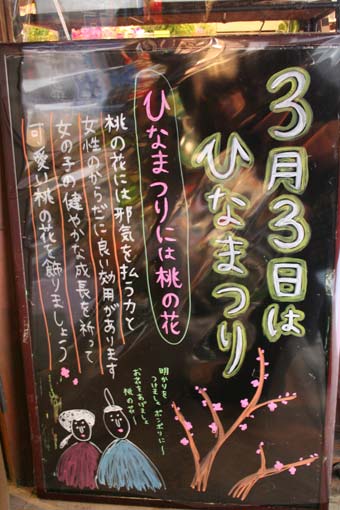 3月3日は
ひなまつり
ひなまつりには桃の花
桃の花には邪気を払う力と
女性のからだに良い効用があります
女の子の健やかな成長を祈って
可愛い桃の花を飾りましょう
明かりを
つけましょボンボリに〜
お花をあげましょ
桃の花〜